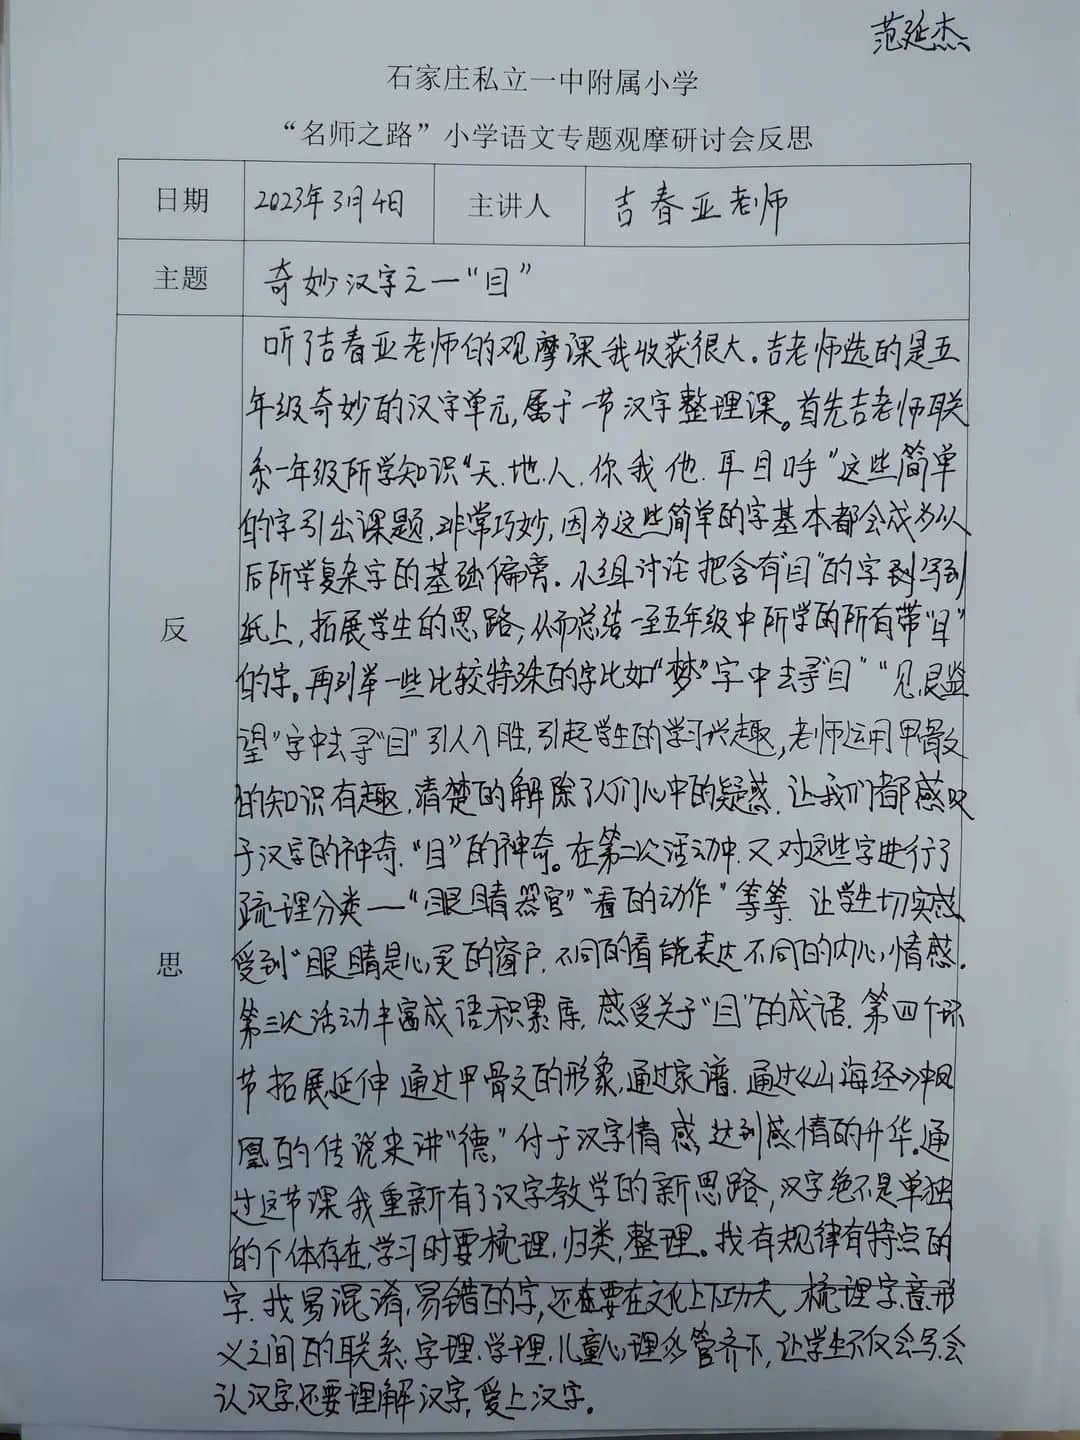 范延杰
石家庄私立一中附属小学
“名师之路”小学语文专题观摩研讨会反思
日期 2023年3月4日 主讲人 吉春亚老师
主题 奇妙汉字之一“目”
反思
听了吉春亚老师的观摩课我收获很大。吉老师选的是五
年级奇妙的汉字单元,属于一节汉字整理课。首先吉老师联
系一年级所学知识“天.地.人.你我他.耳目口手”这些简单
的字引出课题,非常巧妙,因为这些简单的字基本都会成为以
后所学复杂字的基础偏旁。小组讨论把含有“目”的字都写到
纸上,拓展学生的思路,从而总结一至五年级中所学的所有带“目”
的字。再列举一些比较特殊的字比如“梦”字中去寻“目”“见.艮.监
望”字中去寻“目”引人入胜,引起学生的学习兴趣,老师运用甲骨文
的知识有趣.清楚的解除了人们心中的疑惑.让我们都感叹
于汉字的神奇.“目”的神奇。在第二次活动中.又对这些字进行了
疏理分类——“眼睛器官”“看的动作”等等.让学生切实感
受到“眼睛是心灵的窗户.不同的看能表达不同的内心,情感.
第三次活动丰富成语积累库.感受关于“目”的成语.第四个环
节拓展延伸 通过甲骨文的形象,通过家谱.通过《山海经》中凤
凰的传说来讲“德,”付于汉字情感,达到感情的升华。通
过这节课我重新有了汉字教学的新思路,汉字绝不是单独
的个体存在,学习时要梳理,归类,整理。找有规律有特点的
字.找易混淆.易错的字,还要在文化上下功夫,梳理字意.形
义之间的联系.字理.学理.儿童心理多管齐下,让学生不仅会写.会
认汉字,还要理解汉字,爱上汉字。